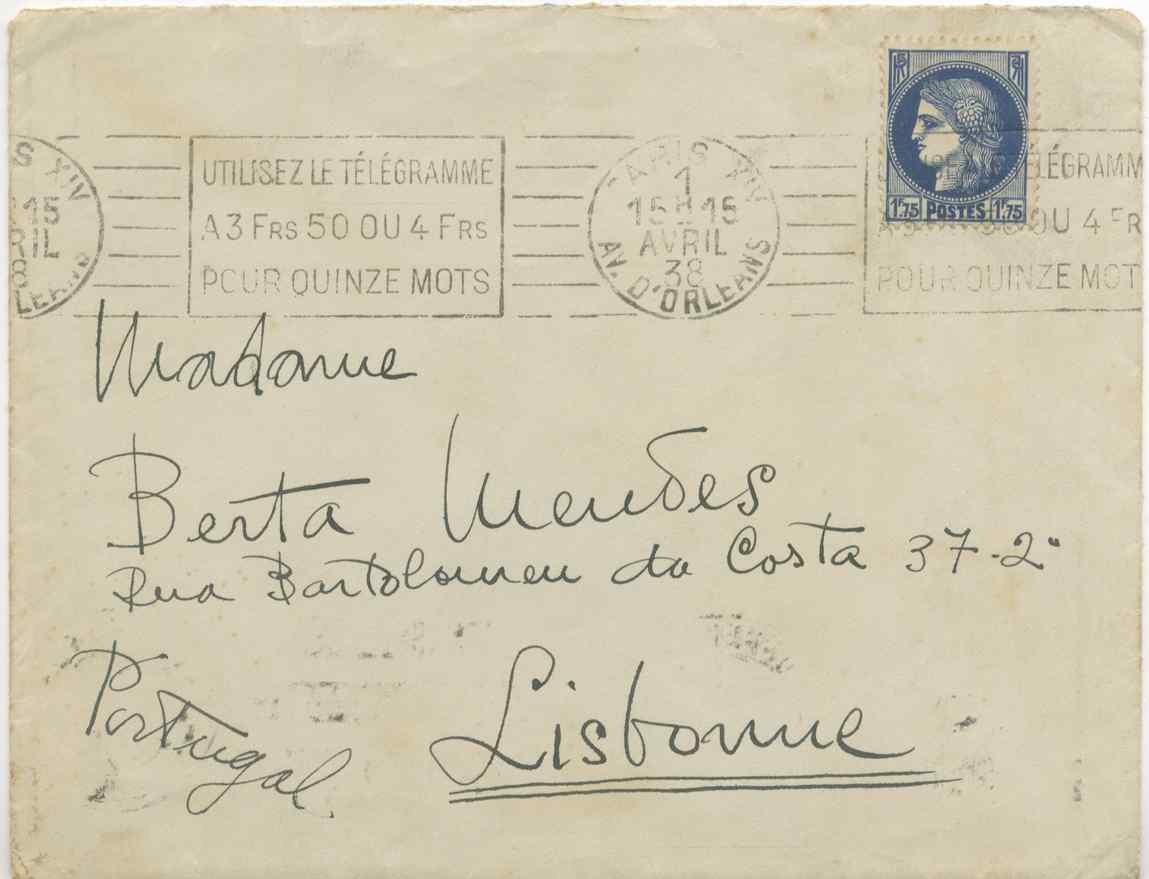 S XIV
15
RIL
8
LEANS
UTILISEZ LE TÉLÉGRAMME
A 3 FRS 50 OU 4 FRS
POUR QUINZE MOTS
PARIS XIV
1
15H15
AVRIL
38
AV. D'ORLEANS
RF
1F,75 POSTES 1F,75
ÉLÉGRAMM
50 OU 4 FR
POUR QUINZE MOT
Madame
Berta Mendes
Rua Bartolomeu da Costa 37-2º
Lisbonne
Portugal